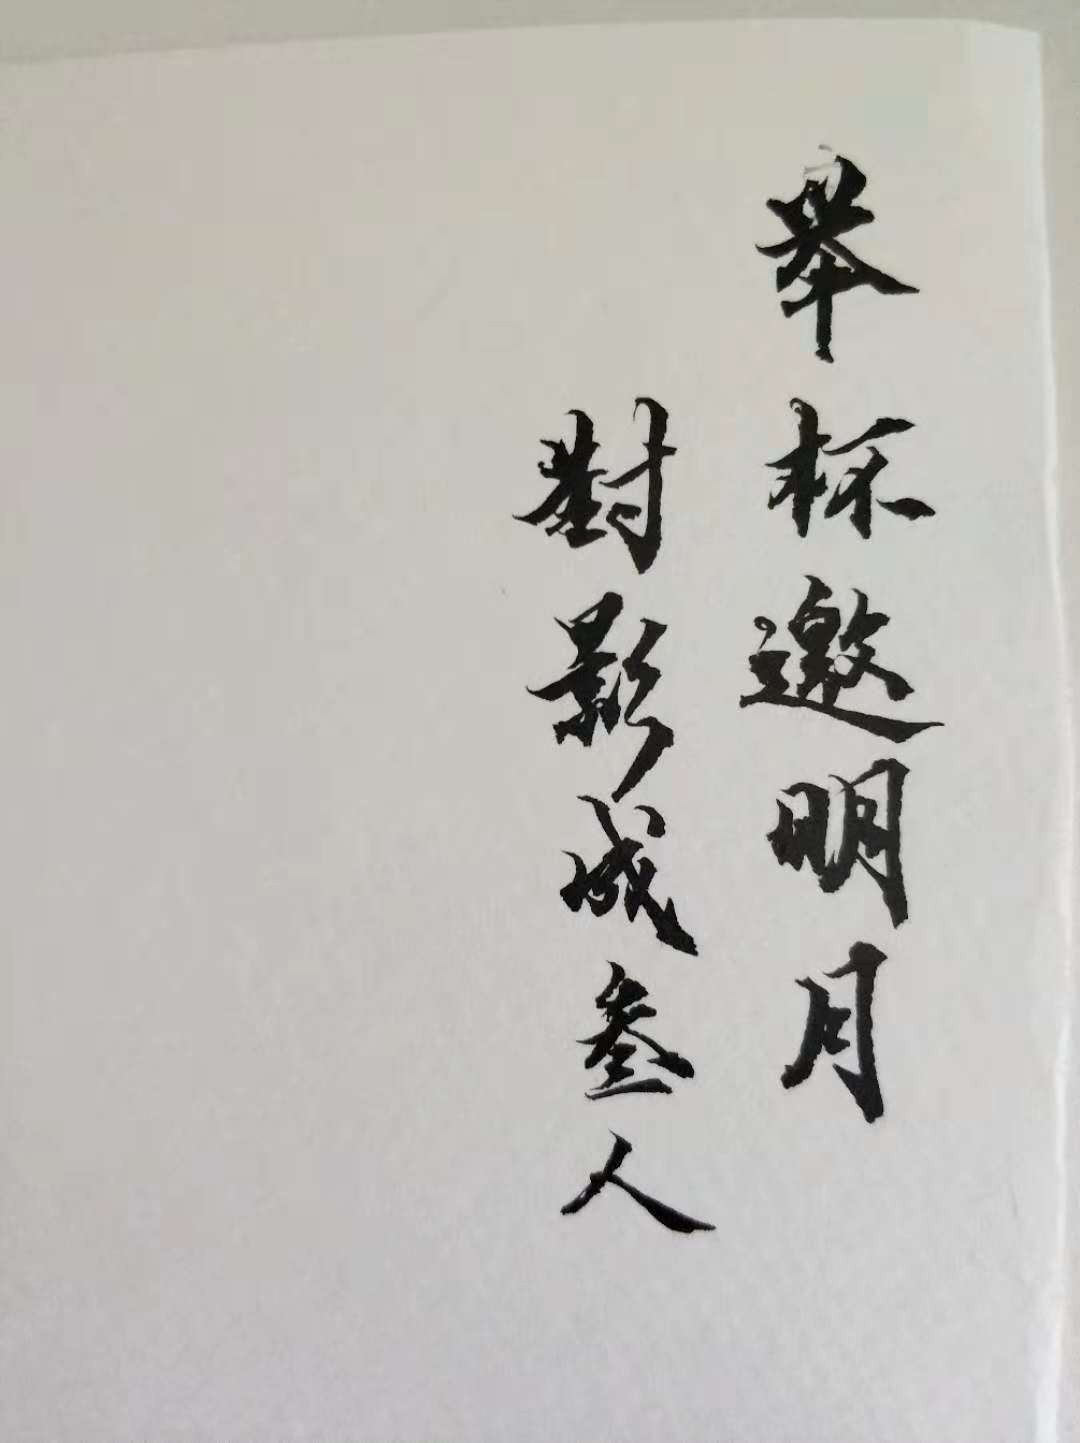 舉杯邀明月
對影成叁人